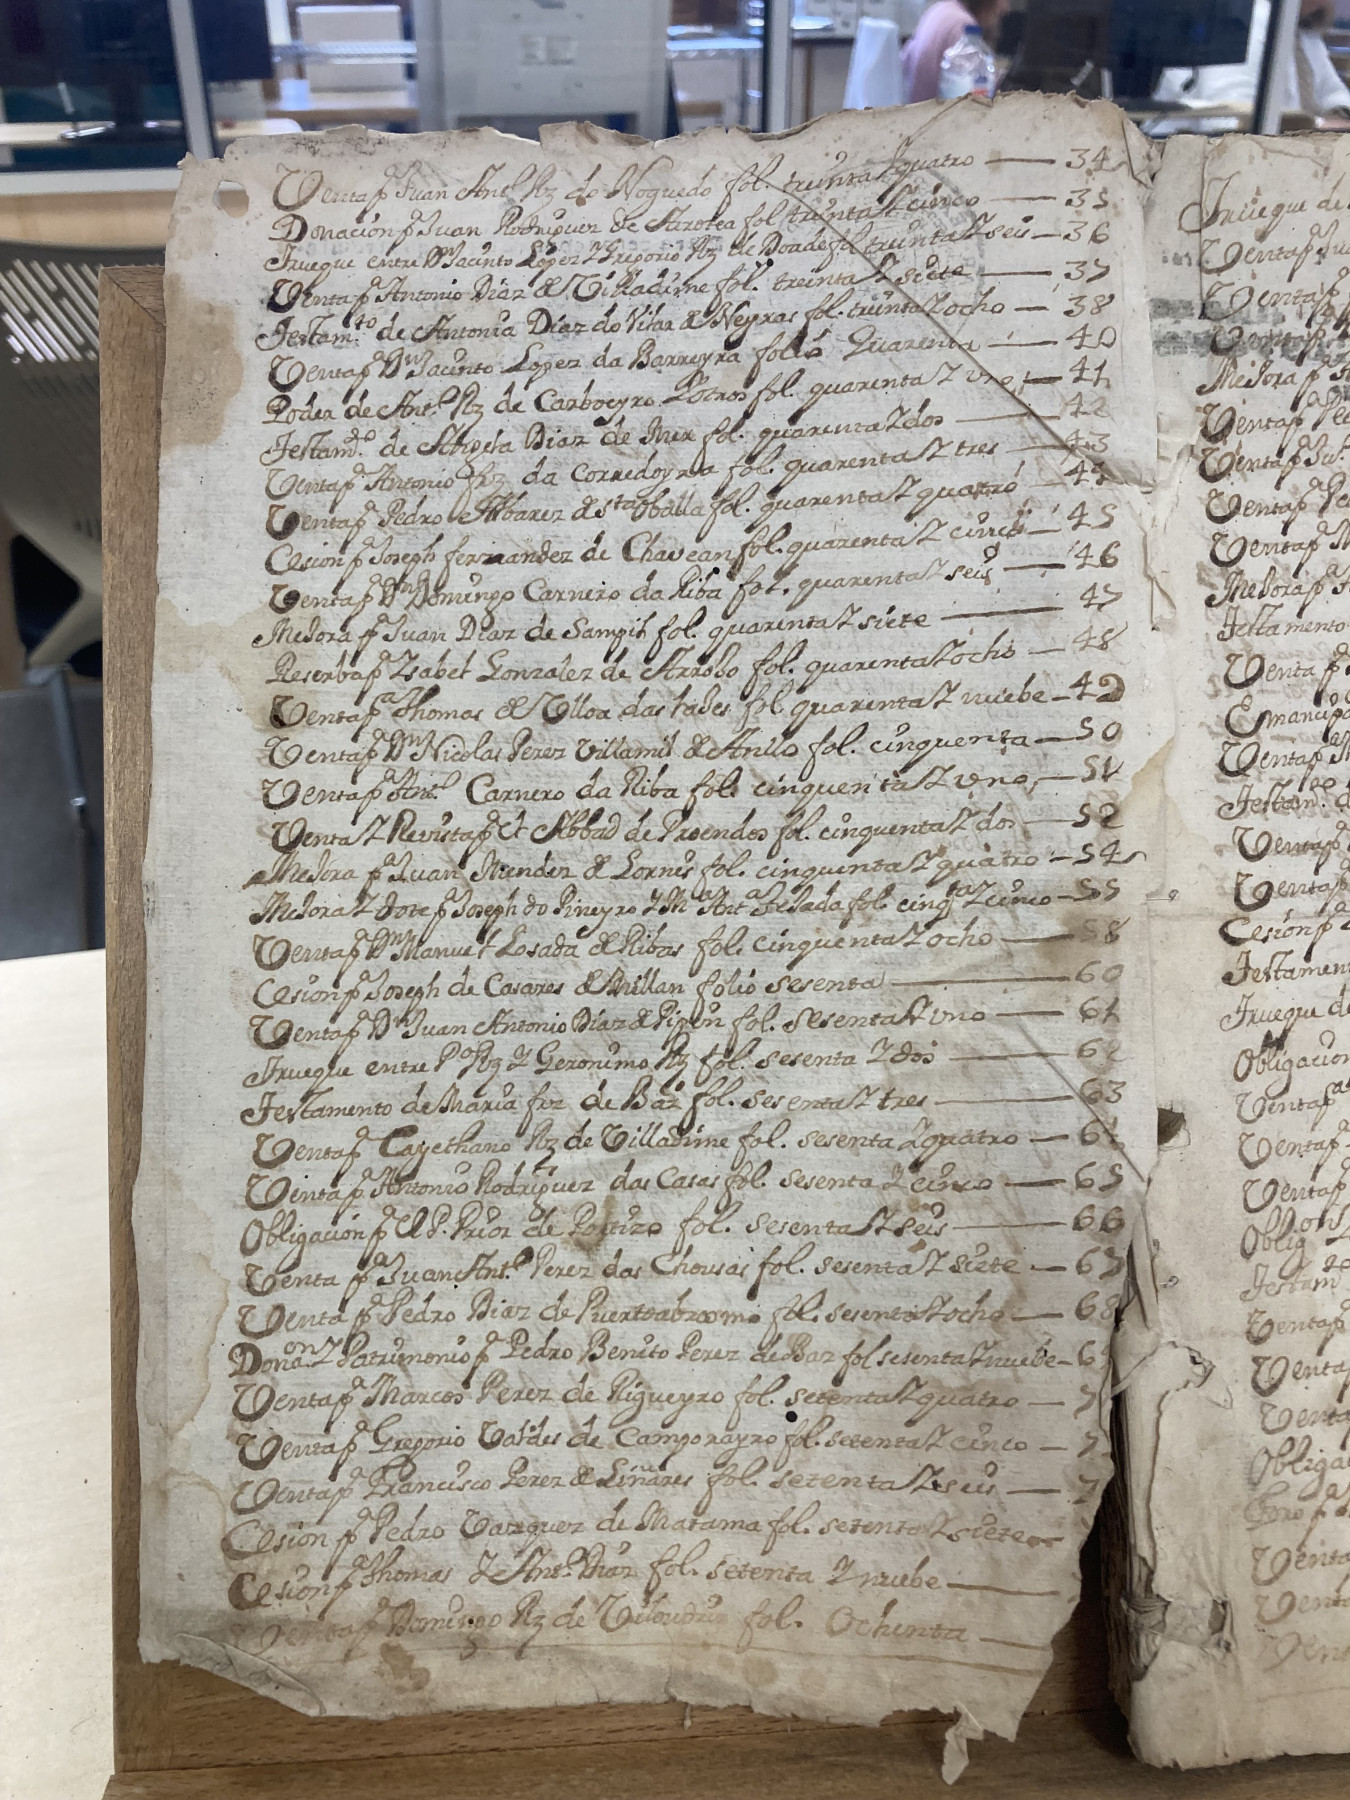 Venta pr Juan Antº Rz do Noguedo fol. treinta Y quatro — 34
Donacion pr Juan Rodriguez de Arrotea fol treinta Y cinco — 35
Trueque entre Dn Jacinto Lopez Y Gregorio Rz de Doade fol treinta Y seis — 36
Venta pr Antonio Diaz de Villadime fol. treinta Y siete — 37
Testamto de Antonia Diaz do Vilar de Neyras fol. treinta Y ocho — 38
Venta pr Dn Jacinto Lopez da Barreyra folio Quarenta — 40
Poder de Antº Rz de Carboeyro Y otros fol. quarenta Y uno — 41
Testamto de Angela Diaz de Mer fol. quarenta Y dos — 42
Venta pr Antonio frz da Corredoyra fol. quarenta Y tres — 43
Venta pr Pedro Albarez de Sta Oballa fol. quarenta Y quatro — 44
Cesion pr Joseph fernandez de Chavean fol. quarenta Y cinco — 45
Venta pr Dn Domingo Carnero da Riba fol. quarenta Y seis — 46
Mejora pr Juan Diaz de Sampil fol. quarenta Y siete — 47
Reserba pr Isabel Gonzalez de Arrojo fol. quarenta Y ocho — 48
Venta pr Thomas de Ulloa das fol quarenta Y nuebe — 49
Venta pr Dn Nicolas Perez Villamil de Anllo fol. cinquenta — 50
Venta pr Antº Carnero da Riba fol. cinquenta Y uno — 51
Venta Y Revista pr el Abbad de Proendos fol. cinquenta Y dos — 52
Mejora pr Juan Mendez de Lornis fol. cinquenta Y quatro — 54
Mejora Y dote pr Joseph do Pineyro Y Ma Anta fol. cinqta Y cinco — 55
Venta pr Dn Manuel Losada de Ribas fol. cinquenta Y ocho — 58
Cesion pr Joseph de Casares de Millan folio sesenta — 60
Venta pr Dn Juan Antonio Diaz de Pigun fol. sesenta Y uno — 61
Trueque entre Po Rz Y Geronimo Rz fol. sesenta Y dos — 62
Testamento de Maria frz de Baz fol. sesenta Y tres — 63
Venta pr Cayethano Rz de Villadime fol. sesenta Y quatro — 64
Venta pr Antonio Rodriguez das Casas fol. sesenta Y cinco — 65
Obligacion pr el P. Prior de fol. sesenta Y seis — 66
Venta pr Juan Antº Perez das Chousas fol. sesenta Y siete — 67
Venta pr Pedro Diaz de Puertoabromo fol. sesenta Y ocho — 68
Donaon Y Patrimonio pr Pedro Benito Perez de Baz fol sesenta Y nuebe — 6
Venta pr Marcos Perez de Rigueyro fol. setenta Y quatro — 7
Venta pr Gregorio Valdes de Camporayro fol. setenta Y cinco — 7
Venta pr Francisco Perez de Liñares fol. setenta Y seis — 7
Cesion pr Pedro Vazquez de Matama fol. setenta Y siete —
Cesion pr Thomas Y Antº Diaz fol. setenta Y nuebe —
Venta pr Domingo Rz de fol. Ochenta —
Trueque de
Venta pr
Venta pr
Venta pr
Mejora pr
Venta pr
Venta pr
Venta pr
Venta pr
Mejora pr
Testamento
Venta pr
Emancipa
Venta pr
Testamto d
Venta pr
Venta pr
Cesion pr
Testament
Trueque de
Obligacion
Venta pr
Venta pr
Venta pr
Oblig
Testam
Venta pr
Venta
Venta
Obliga
Foro pr
Venta
Venta
Vent